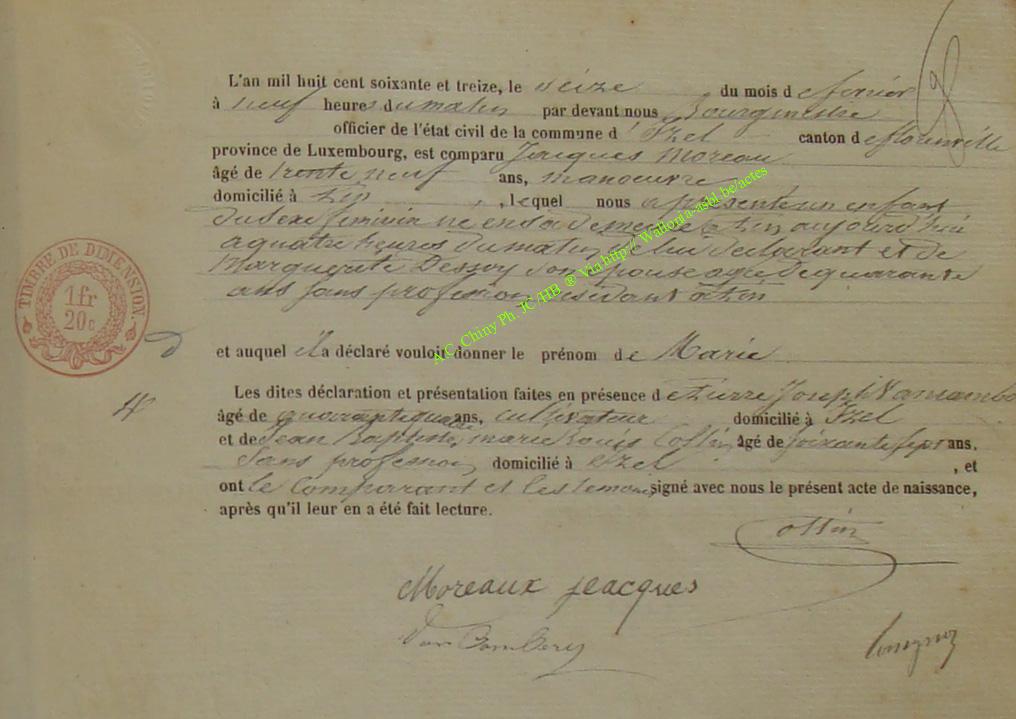 L'an mil huit cent soixante et treize, le seize du mois de fevrier
à neuf heures du matin par devant nous Bourgmestre
officier de l'état civil de la commune d'Izel canton de florenville
province de Luxembourg, est comparu Jacques Moreau
âgé de trente neuf ans, manoeuvre
domicilié à , lequel nous a présenté un enfant
du sexe feminin né en sa demeure aujourd'hui
a quatre heures du matin de lui declarant et de
Marguerite Dessoy son épouse agée de quarante
ans sans profession résidant
et auquel il a déclaré vouloir donner le prénom de Marie
Les dites déclaration et présentation faites en présence de Pierre Joseph
âgé de quarante quatre ans, cultivateur domicilié à Izel
et de Jean Baptiste marie Louis Collin âgé de soixante sept ans,
sans profession domicilié à Izel , et
ont le comparant et les temoins signé avec nous le présent acte de naissance,
après qu'il leur en a été fait lecture.
TIMBRE DE DIMENSION.
1fr
20c
A.C. Chiny Ph. JC /HB ® Via http:// Wallonia-asbl.be/actes
Moreaux jeacques